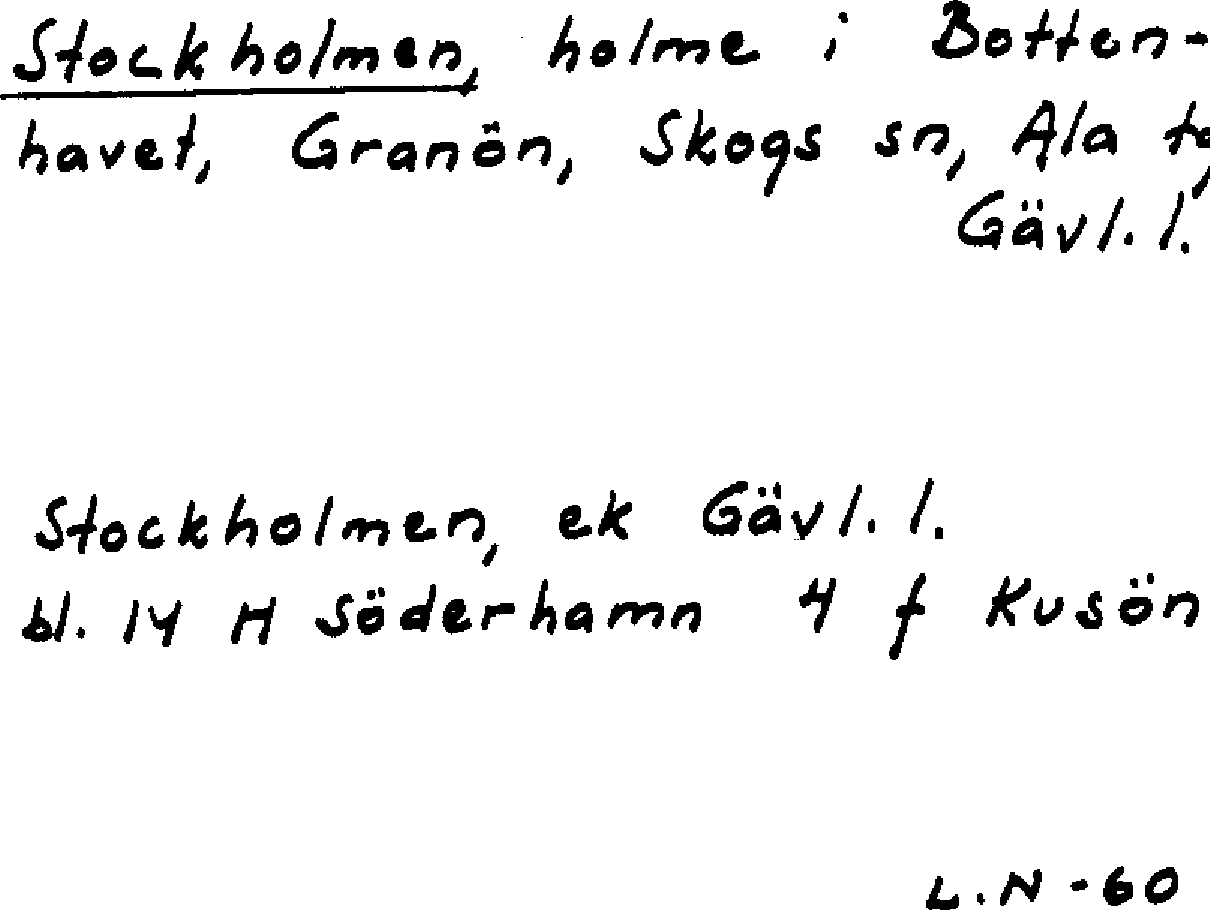 Stockholmen, holme i Botten-
havet, Granön, Skogs sn, Ala tg,
Gävl. l.
Stockholmen, ek Gävl. l.
bl. 14 H Söderhamn 4 f Kusön
L.N -60